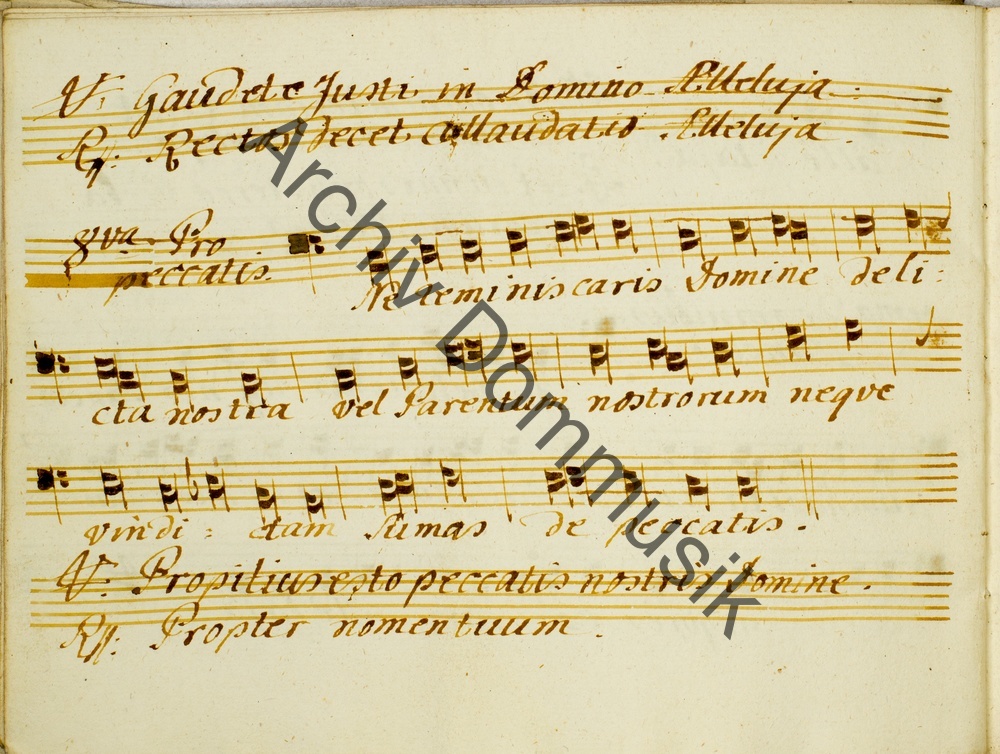 V. Gaudete Justi in Domino Alleluja.
R. Rectos decet collaudatio Alleluja.
8va. Pro
peccatis.
Ne reminiscaris Domine deli:
cta nostra vel Parentum nostrorum neqve
vindi: ctam sumas de peccatis.
V. Propitius esto peccatis nostris Domine.
R. Propter nomen tuum.
Archiv Dommusik